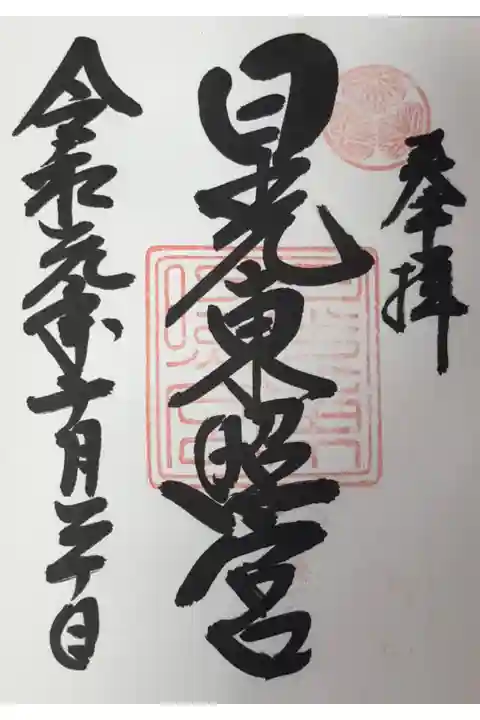 奉拝
日光東照宮
令和元年十月日